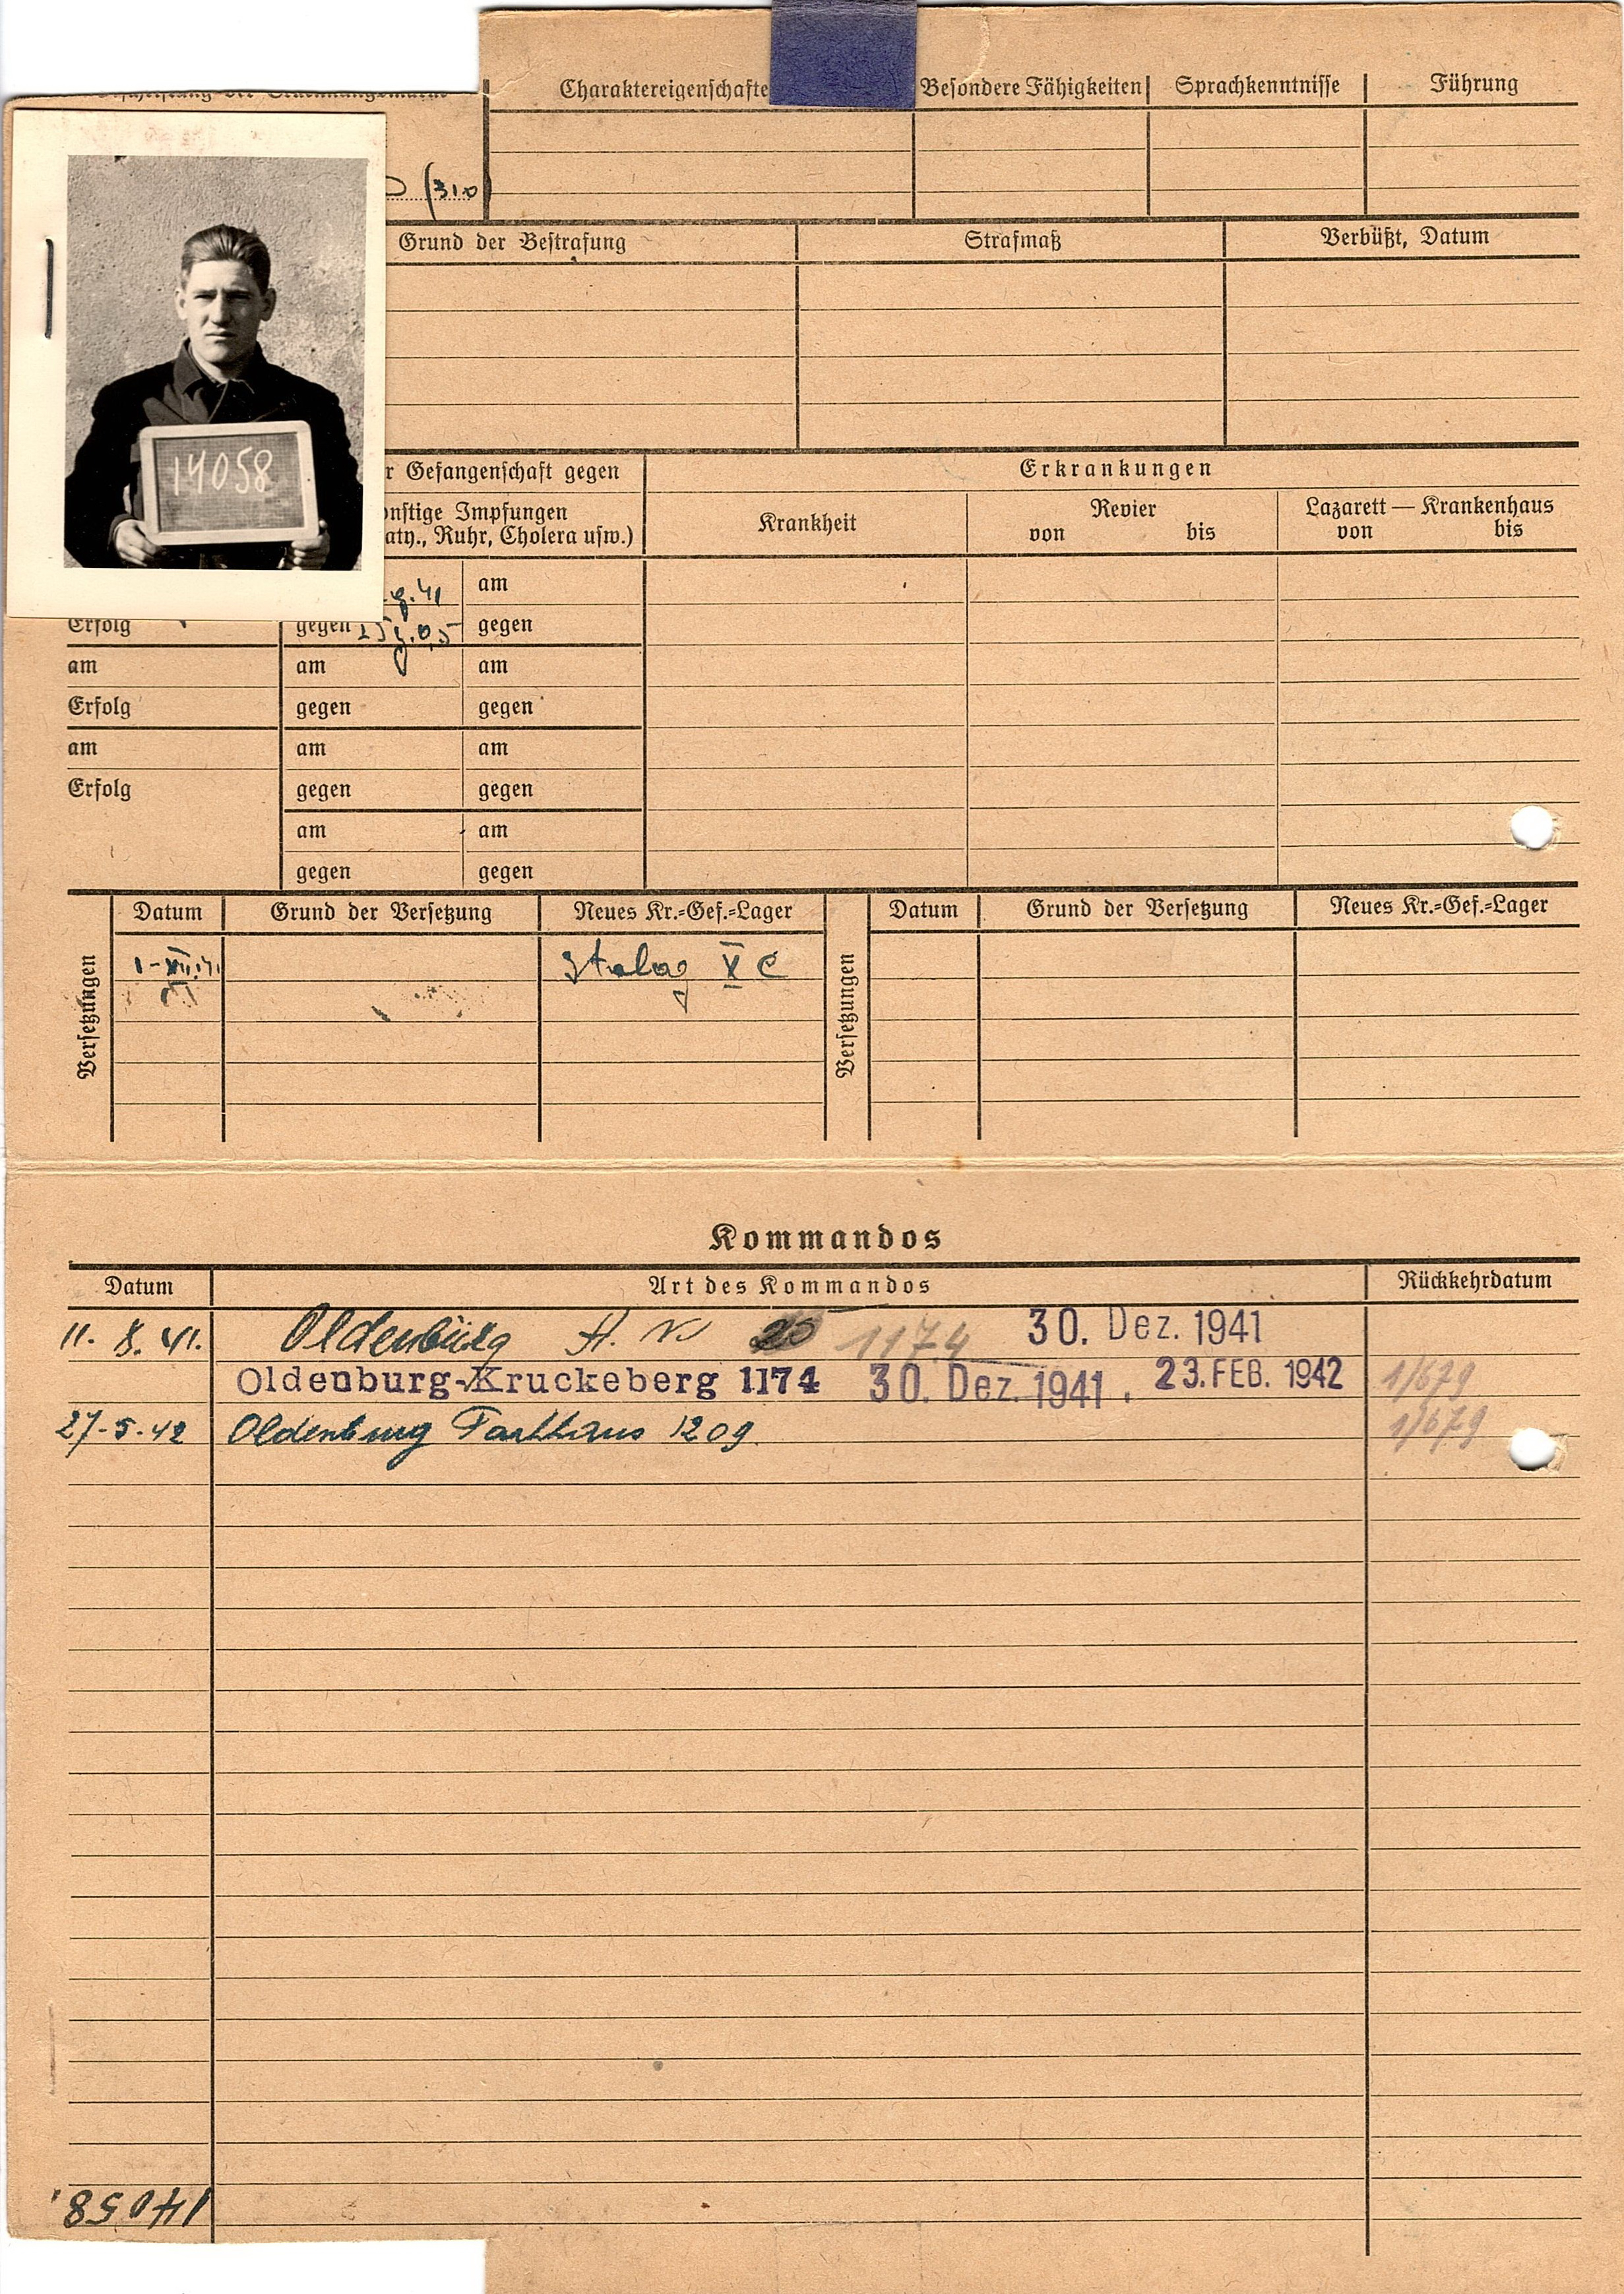 Charaktereigenschafte Besondere Fähigkeiten Sprachkenntnisse Führung
(310)
Grund der Bestrafung Strafmaß Verbüßt, Datum
14058
r Gefangenschaft gegen Erkrankungen
onstige Impfungen Krankheit Revier Lazarett — Krankenhaus
, Ruhr, Cholera usw.) von bis von bis
41 am
Erfolg gegen gegen
am am am
Erfolg gegen gegen
am am am
Erfolg gegen gegen
am am
gegen gegen
Versetzungen Datum Grund der Versetzung Neues Kr.=Gef.=Lager Versetzungen Datum Grund der Versetzung Neues Kr.=Gef.=Lager
Stalag X C
Kommandos
Datum Art des Kommandos Rückkehrdatum
11. 8. 41. Oldenburg 1174 30. Dez. 1941
Oldenburg-Kruckeberg 1174 30. Dez. 1941. 23. FEB. 1942 1/679
27-5-42 Oldenburg 1209 1/679
14058